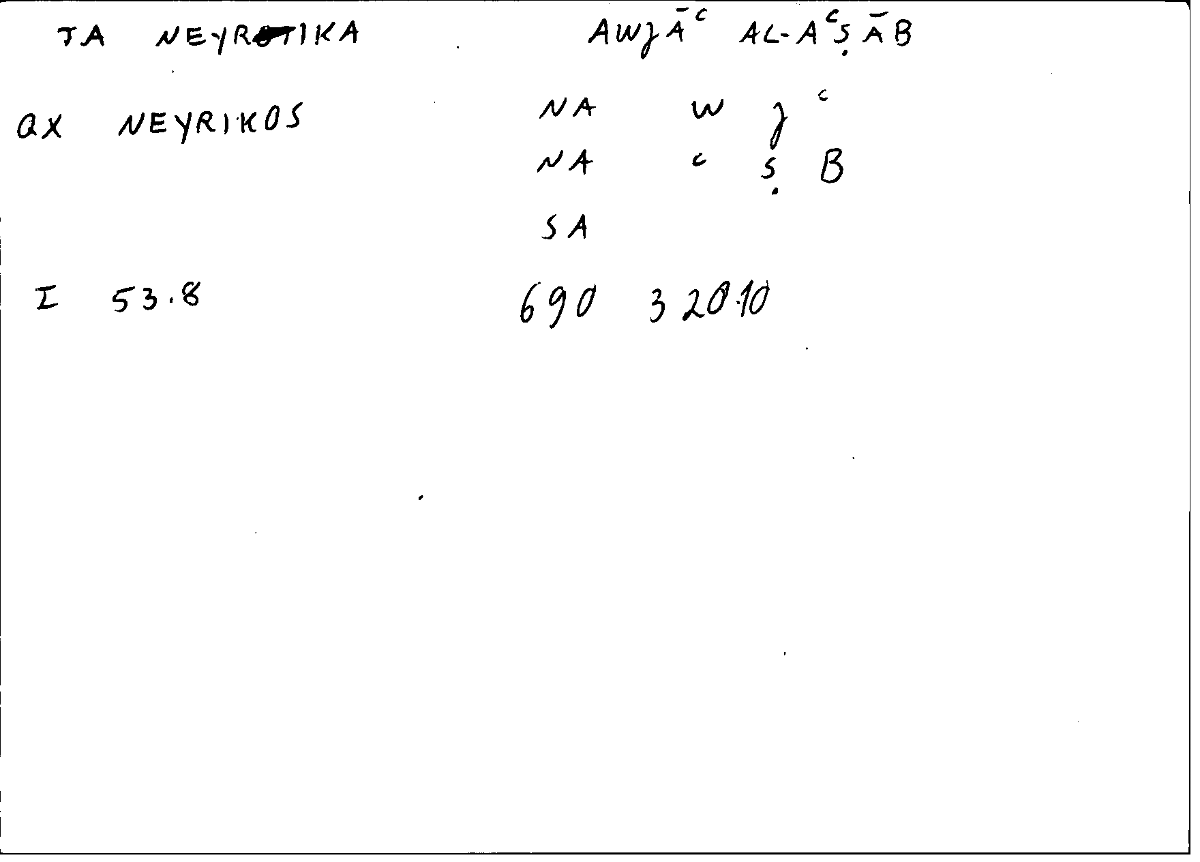 TA NEYRIKA AWJĀᶜ AL-AᶜṢĀB
QX NEYRIKOS NA W J ᶜ
NA ᶜ Ṣ B
SA
I 53.8 690 320.10